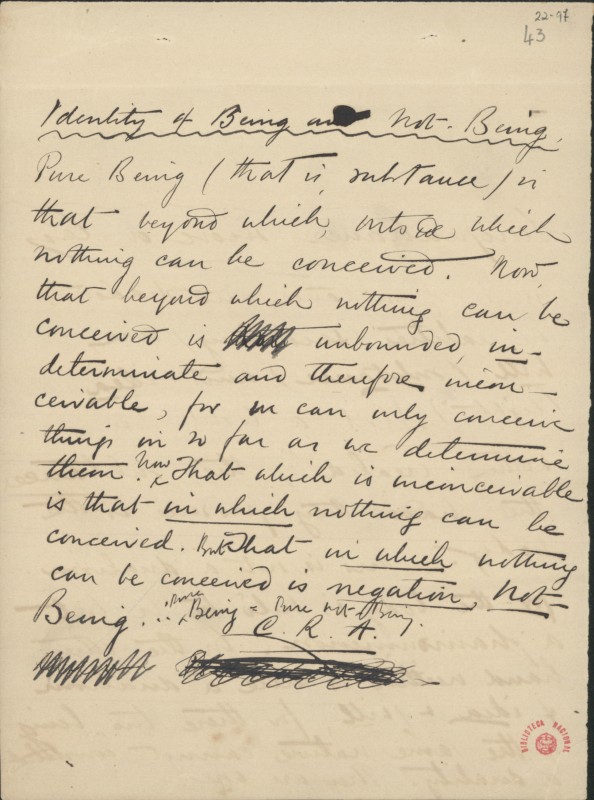 22-97
43
Identity of Being and Not-Being.
Pure Being (that is, substance) is
that beyond which, outside which
nothing can be conceived. Now,
that beyond which nothing can be
conceived is unbounded, in-
determinate and therefore incon-
ceivable, for we can only conceive
things in so far as we determine
them. Now that which is inconceivable
is that in which nothing can be
conceived. But that in which nothing
can be conceived is negation, Not-
Being... Pure Being = Pure not-Being.
C. R. A.
BIBLIOTECA NACIONAL